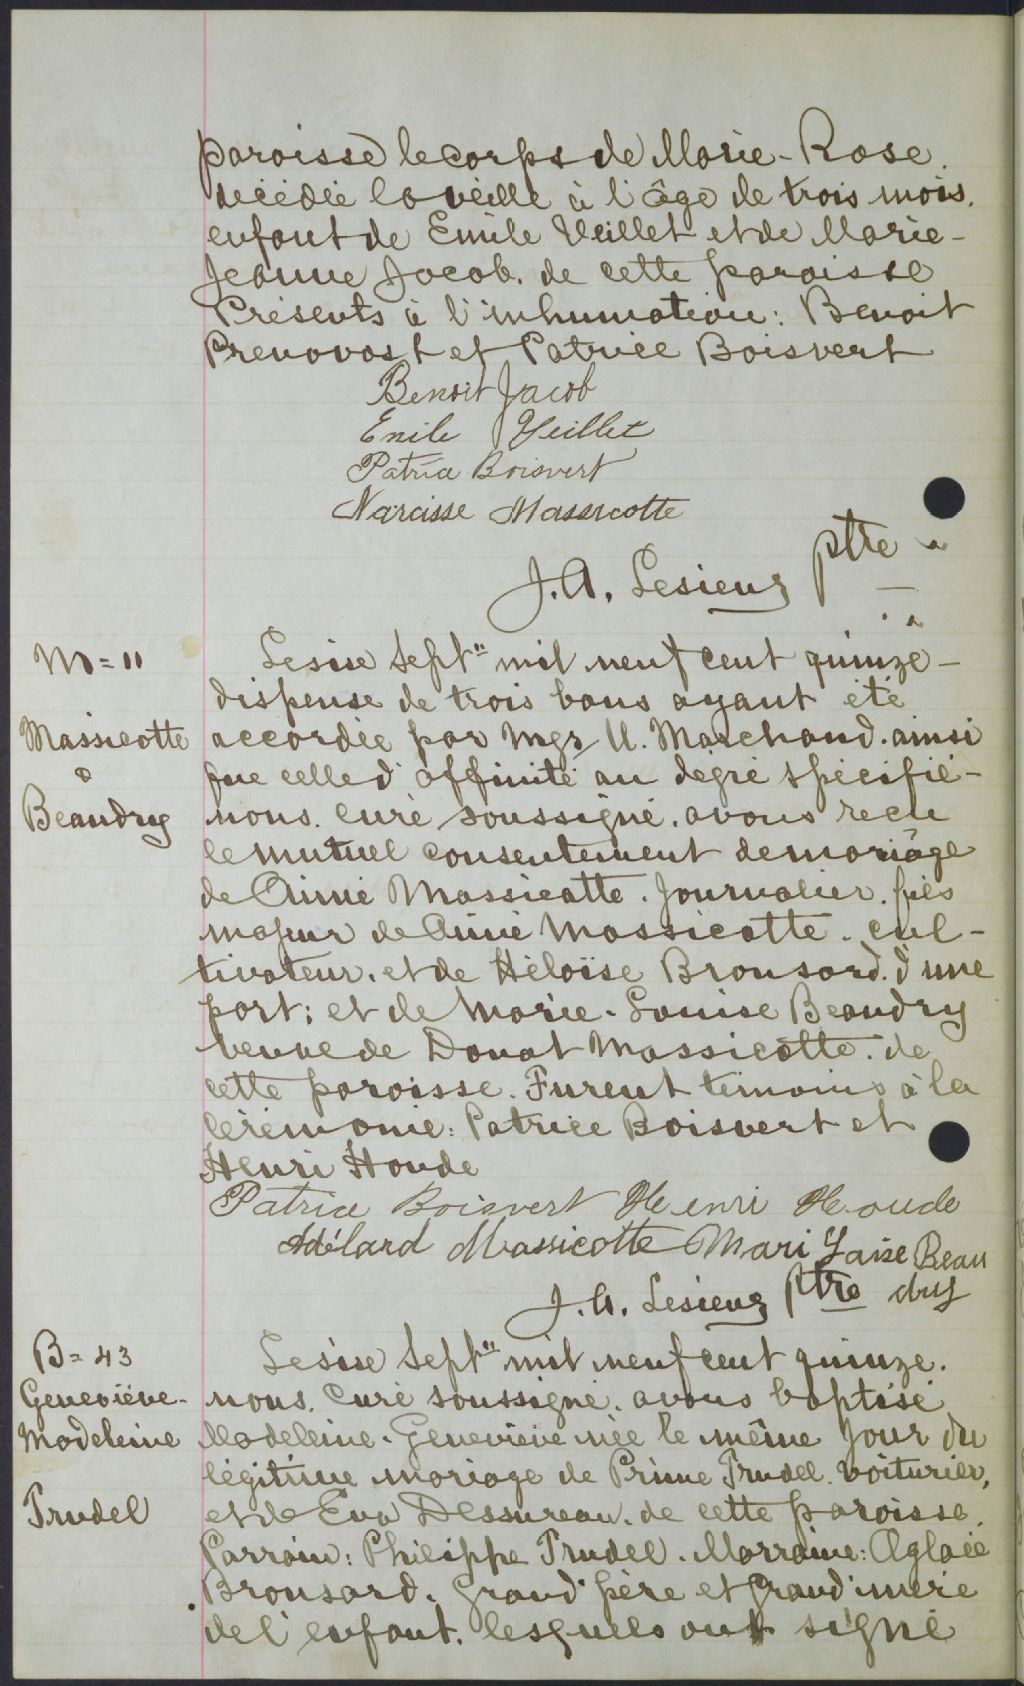 paroisse le corps de Marie-Rose.
décédée la veille à l'âge de trois mois.
enfant de Emile Veillet et de Marie-
Jeanne Jacob. de cette paroisse
Présents à l'inhumation: Benoit
Prenovost et Patrice Boisvert
Benoit Jacob
Emile Veillet
Patrice Boisvert
Narcisse Massicotte
J.A. Lesieur ptre
M=11
Massicotte
&
Beaudry
Le sise Sept" mil neuf cent quinze-
dispense de trois bans ayant été
accordée par Mgr U. Marchand. ainsi
que celle d'affinité au dégré spécifié-
nous. curé soussigné. avons recu
le mutuel consentement de mariage
de Aimé Massicotte. Journalier. fils
majeur de Aimé Massicotte. cul-
tivateur. et de Héloïse Bronsard. d'une
part; et de Marie-Louise Beaudry
veuve de Donat Massicotte. de
cette paroisse. Furent témoins à la
cérémonie: Patrice Boisvert et
Henri Houde
Patrice Boisvert Henri Houde
Adélard Massicotte Mari Laise Beau
dry
J.A. Lesieur Ptre
B=43
Geneviève-
Madeleine
Trudel
Le sise Sept" mil neuf cent quinze.
nous. Curé soussigné. avons baptisé
Madeleine-Geneviève née le même jour du
légitime mariage de Prime Trudel. voiturier,
et de Eva Dessureau. de cette paroisse.
Parrain: Philippe Trudel. Marraine: Aglaée
Bronsard. Grand'père et grand'mère
de l'enfant. lesquels ont signé